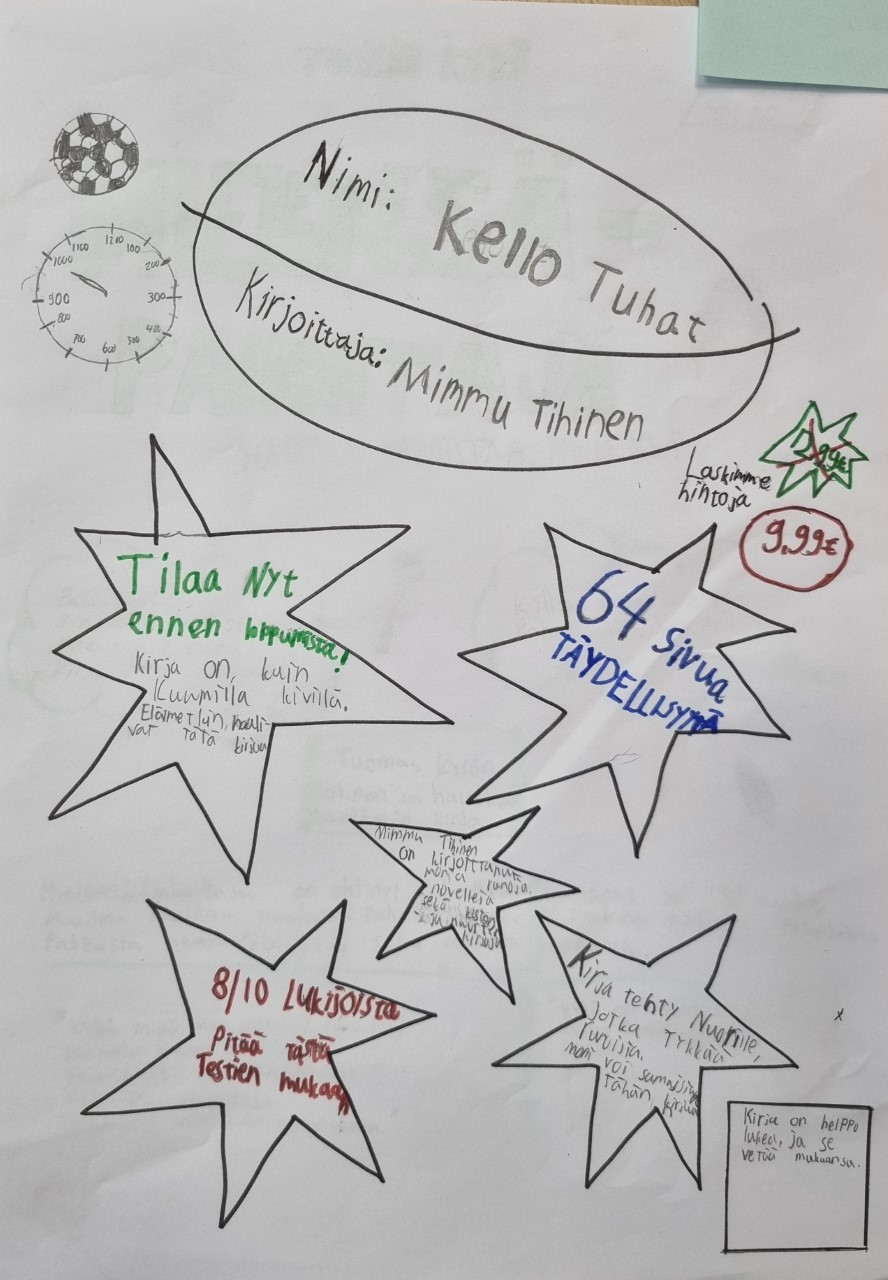 Nimi: Kello Tuhat
Kirjoittaja: Mimmu Tihinen
1200
100
200
300
400
500
600
700
800
900
1000
1100
Laskimme
hintoja
9.99€
Tilaa Nyt
ennen loppumista!
Kirja on, kuin
Kuumilla kivillä.
tätä
kirjaa
64 Sivua
TÄYDELLISYYTTÄ
Mimmu Tihinen
on kirjoittanut
monia runoja,
novelleja
sekä lasten
kirjoja
8/10 Lukijoista
Pitää tästä
Testien mukaan
Kirja tehty Nuorille,
Jotka Tykkää
runoista.
moni voi samaistua
tähän, kirjaan
Kirja on helppo
lukea, ja se
vetää mukaansa.